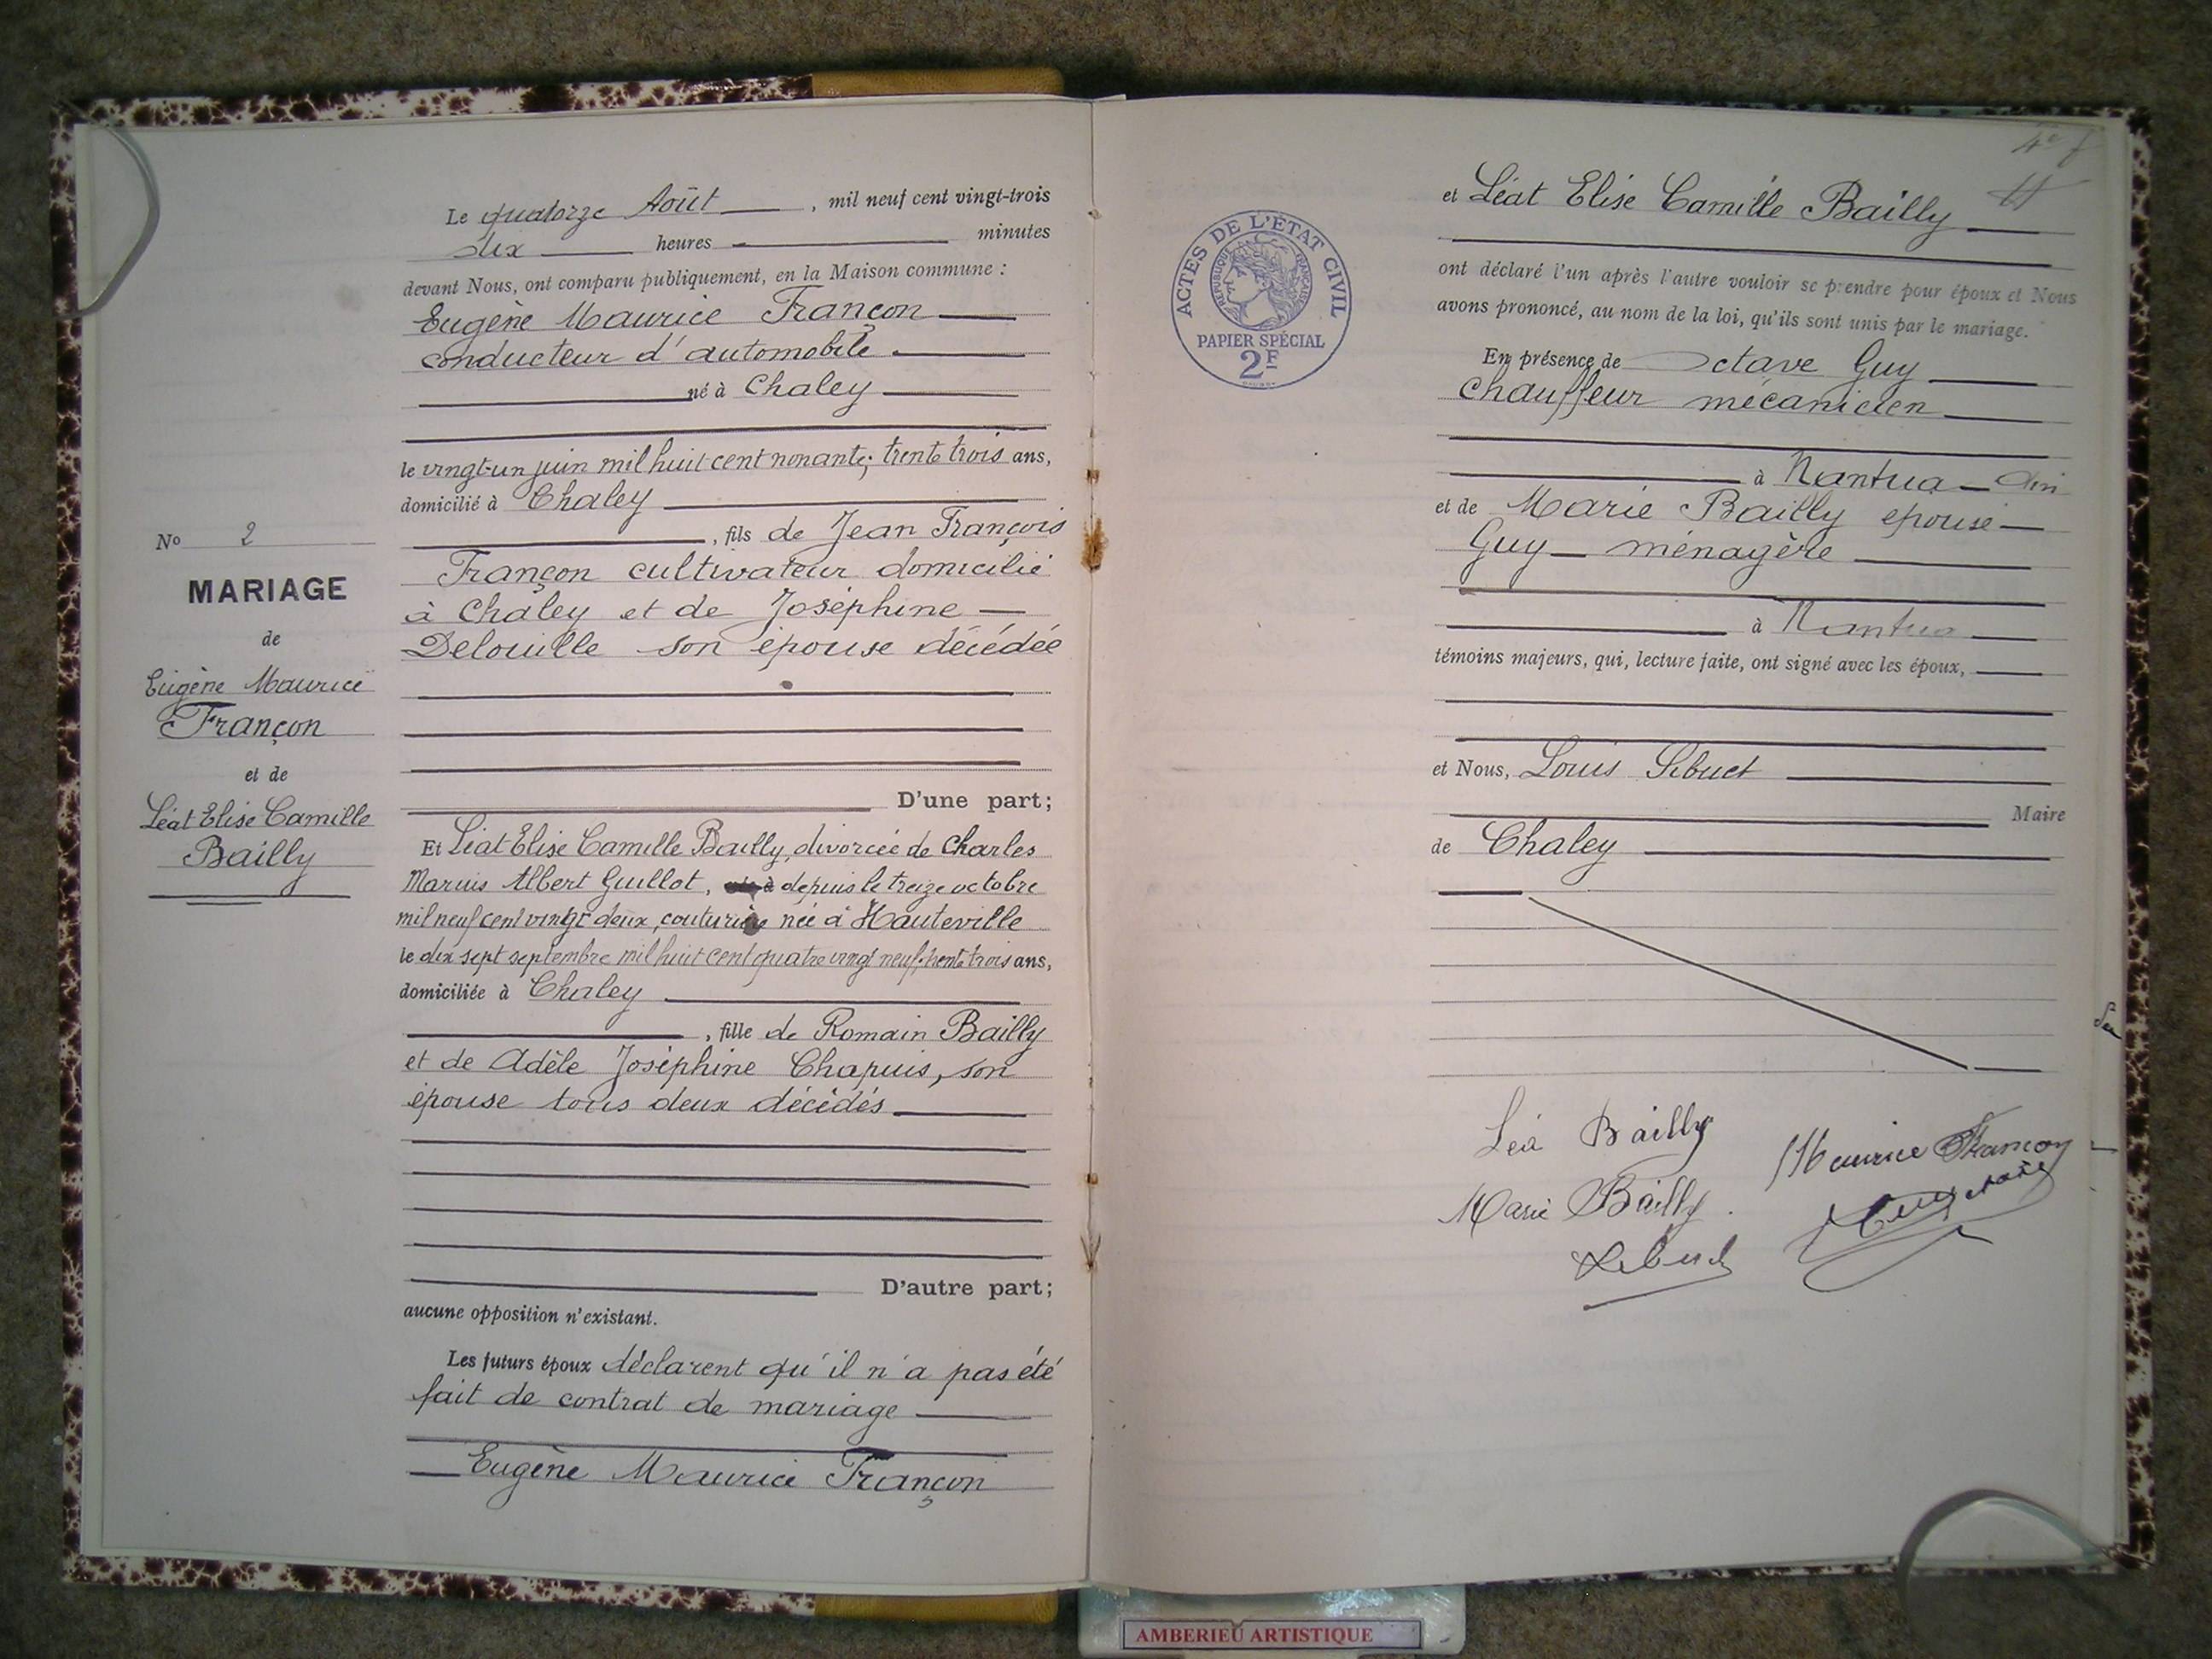 Le quatorze Août, mil neuf cent vingt-trois
dix heures minutes
devant Nous, ont comparu publiquement, en la Maison commune :
Eugène Maurice Françon
conducteur d'automobile
né à Chaley
le vingt-un juin mil huit cent nonante; trente trois ans,
domicilié à Chaley
, fils de Jean François
Françon cultivateur domicilié
à Chaley et de Joséphine
Delouille son épouse décédée
D'une part;
Et Léat Elise Camille Bailly, divorcée de Charles
Marius Albert Guillot, depuis le treize octobre
mil neuf cent vingt deux, couturière née à Hauteville
le dix sept septembre mil huit cent quatre vingt neuf, trente trois ans,
domiciliée à Chaley
, fille de Romain Bailly
et de Adèle Joséphine Chapuis, son
épouse tous deux décédés
D'autre part;
aucune opposition n'existant.
Les futurs époux déclarent qu'il n'a pas été
fait de contrat de mariage
Eugène Maurice Françon
No 2
MARIAGE
de
Eugène Maurice
Françon
et de
Léat Elise Camille
Bailly
ACTES DE L'ÉTAT CIVIL
RÉPUBLIQUE FRANÇAISE
PAPIER SPÉCIAL
2F
et Léat Elise Camille Bailly
ont déclaré l'un après l'autre vouloir se prendre pour époux et Nous
avons prononcé, au nom de la loi, qu'ils sont unis par le mariage.
En présence de Octave Guy
Chauffeur mécanicien
à Nantua Ain
et de Marie Bailly épouse
Guy ménagère
à Nantua
témoins majeurs, qui, lecture faite, ont signé avec les époux,
et Nous, Louis Sibuet
Maire
de Chaley
Léa Bailly
Maurice Françon
Marie Bailly
Guy Octave
Sibuet
AMBERIEU ARTISTIQUE